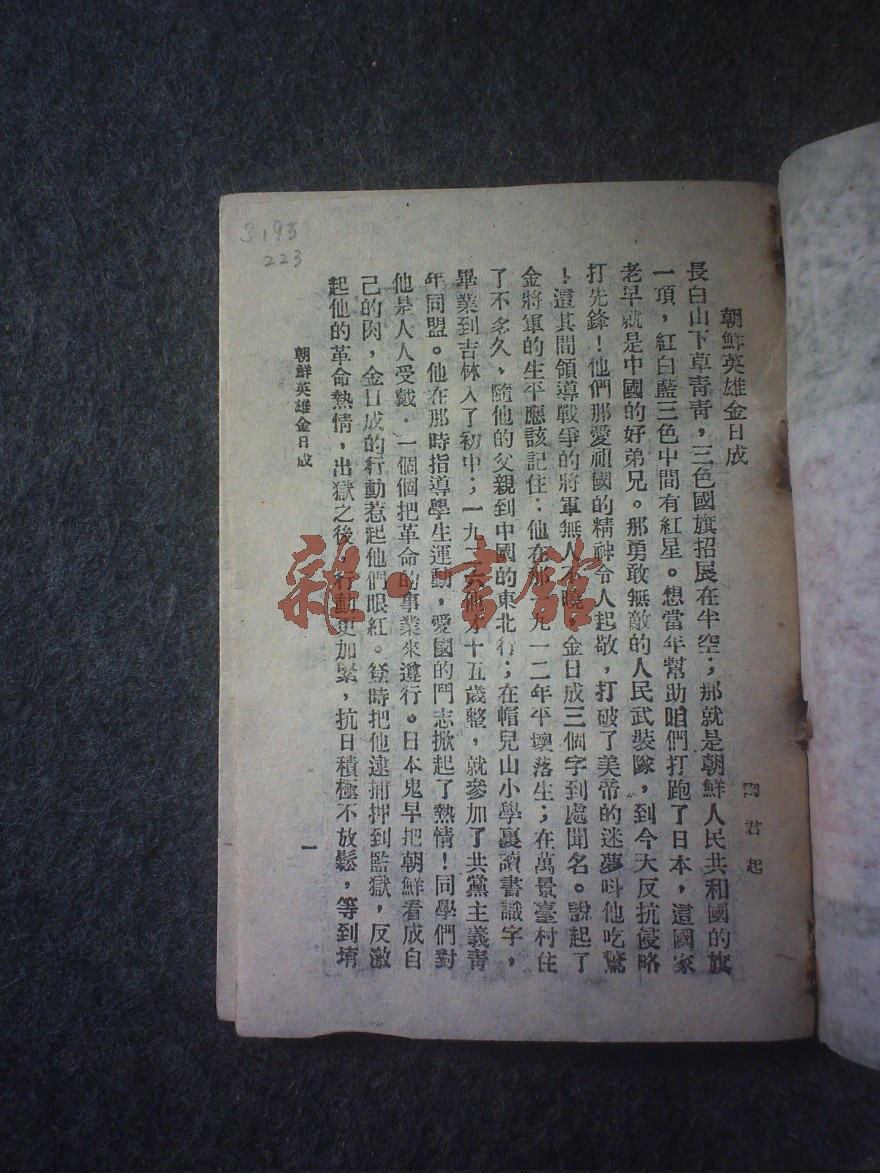 朝鮮英雄金日成
陶君起
長白山下草靑靑，三色國旗招展在半空；那就是朝鮮人民共和國的旗
一項，紅白藍三色中間有紅星。想當年幫助咱們打跑了日本，這國家
老早就是中國的好弟兄。那勇敢無敵的人民武裝隊，到今天反抗侵略
打先鋒！他們那愛祖國的精神令人起敬，打破了美帝的迷夢呌他吃驚
！這其間領導戰爭的將軍無人不曉，金日成三個字到處聞名。說起了
金將軍的生平應該記住：他在那一九一二年平壤落生；在萬景臺村住
了不多久，隨他的父親到中國的東北行；在帽兒山小學裏讀書識字，
畢業到吉林入了初中；一九二六他才十五歲整，就參加了共黨主義靑
年同盟。他在那時指導學生運動，愛國的鬥志掀起了熱情！同學們對
他是人人受戴，一個個把革命的事業來遵行。日本鬼早把朝鮮看成自
己的肉，金日成的行動惹起他們眼紅。登時把他逮捕押到監獄，反激
起他的革命熱情，出獄之後，行動更加緊，抗日積極不放鬆，等到堉
朝鮮英雄金日成
一
S.193
223
雜·書館